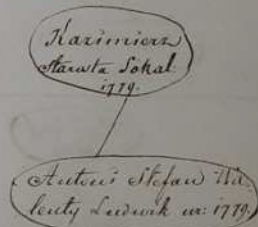 Kazimierz
Starosta Sokal.
1779.
Antoni Stefan Wa-
lenty Ludwik ur: 1779.